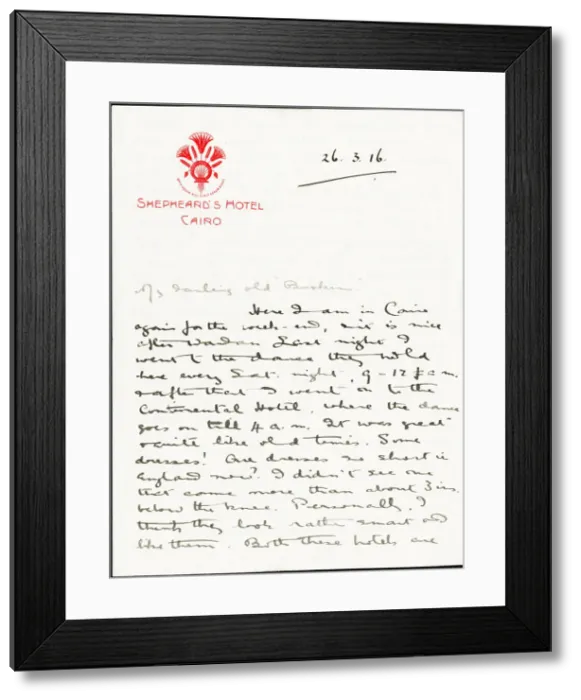 26. 3. 16.
SHEPHEARD'S HOTEL
CAIRO
My darling old
Here I am in Cairo
again for the week-end, is nice
after Wardan Last night I
went to the dance they hold
here every Sat. night, 9-12
& after that I went on to the
Continental Hotel, where the dance
goes on till 4 a.m. It was great
& quite like old times. Some
dresses! Are dresses so short in
England now? I didn't see one
that came more than about 3 ins.
below the knee. Personally, I
think they look rather smart and
like them. Both these hotels are